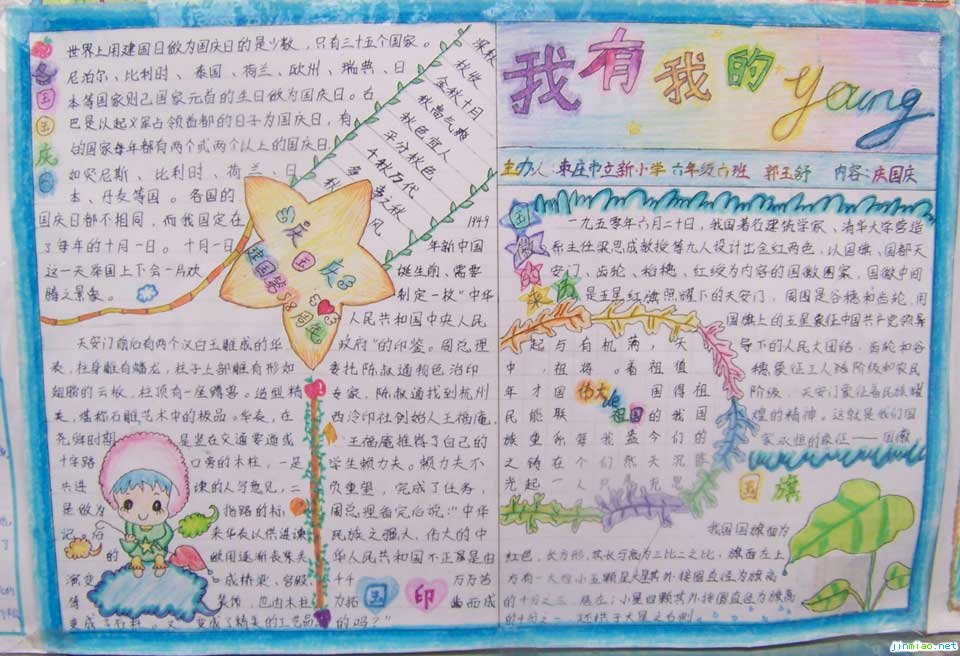 我有我的young
主办人：枣庄市立新小学 六年级六班 郭玉舒 内容：庆国庆
国庆
世界上用建国日做为国庆日的是少数，只有三十五个国家。
尼泊尔、比利时、泰国、荷兰、欧州、瑞典、日
本等国家则己国家元首的生日做为国庆日。古
巴是以起义军占领首都的日子为国庆日，有
的国家每年都有两个或两个以上的国庆日。
如突尼斯、比利时、荷兰、日
本、丹麦等国。各国的
国庆日都不相同，而我国定在
了每年的十月一日。十月一日
这一天举国上下会一片欢
腾之景象。
秋色
金秋十月
秋高气爽
秋色宜人
平分秋色
千秋万代
多事之秋
庆
国
庆
建国路58周年
天安门前后有两个汉白玉雕成的华
表，柱身雕有蟠龙，柱子上部雕有形如
翅膀的云板，柱顶有一座蹲兽。造型精
美，堪称石雕艺术中的极品。华表，在
尧舜时期是竖在交通要道或
十字路口旁的木柱，一是
供进谏的人写意见，二
是做为指路的标
记。后来华表从供进谏
的做用逐渐丧失
演变成桥梁、宫殿
等装饰，也由木柱
变成了石料，又变成了精美的工艺品。
1949
年新中国
诞生前，需要
制定一枚“中华
人民共和国中央人民
政府”的印鉴。周总理
委托陈叔通物色治印
专家，陈叔通找到杭州
西泠印社创始人王福庵，
王福庵推荐了自己的
学生顿力夫。顿力夫不
负重望，完成了任务，
周总理指定后说：“中华
民族之强大，伟大的中
华人民共和国不正是由
千千万万的
力拓
而成
的吗？”
国印
一九五零年六月二十日，我国著名建筑学家、清华大学营造
系主任梁思成教授等九人设计出金红两色，以国旗、国都天
安门、齿轮、稻穗、红绶为内容的国徽图案，国徽中间
是五星红旗照耀下的天安门，周围是谷穗和齿轮，用
国旗上的五星象征中国共产党领导
下的人民大团结，齿轮和谷
穗象征工人阶级和农民
阶级，天安门象征着民族辉
煌的精神。这就是我们国
家永恒的象征——国徽
起与有机满，天
中，祖将。看祖值
年才国伟大的祖国国得祖
民能联的我国
族重所等我盖今们的
之铸在个们然天沉
光起一人只
国旗
我国国旗面为
红色，长方形，其长与高为三比二之比，旗面左上
方有一大四小五颗星大星其外接圆直径为旗高
的十分之三，居左；小星四颗其外接圆直径为旗高
的十分之一，环拱于大星之右侧。
jinmiao.net